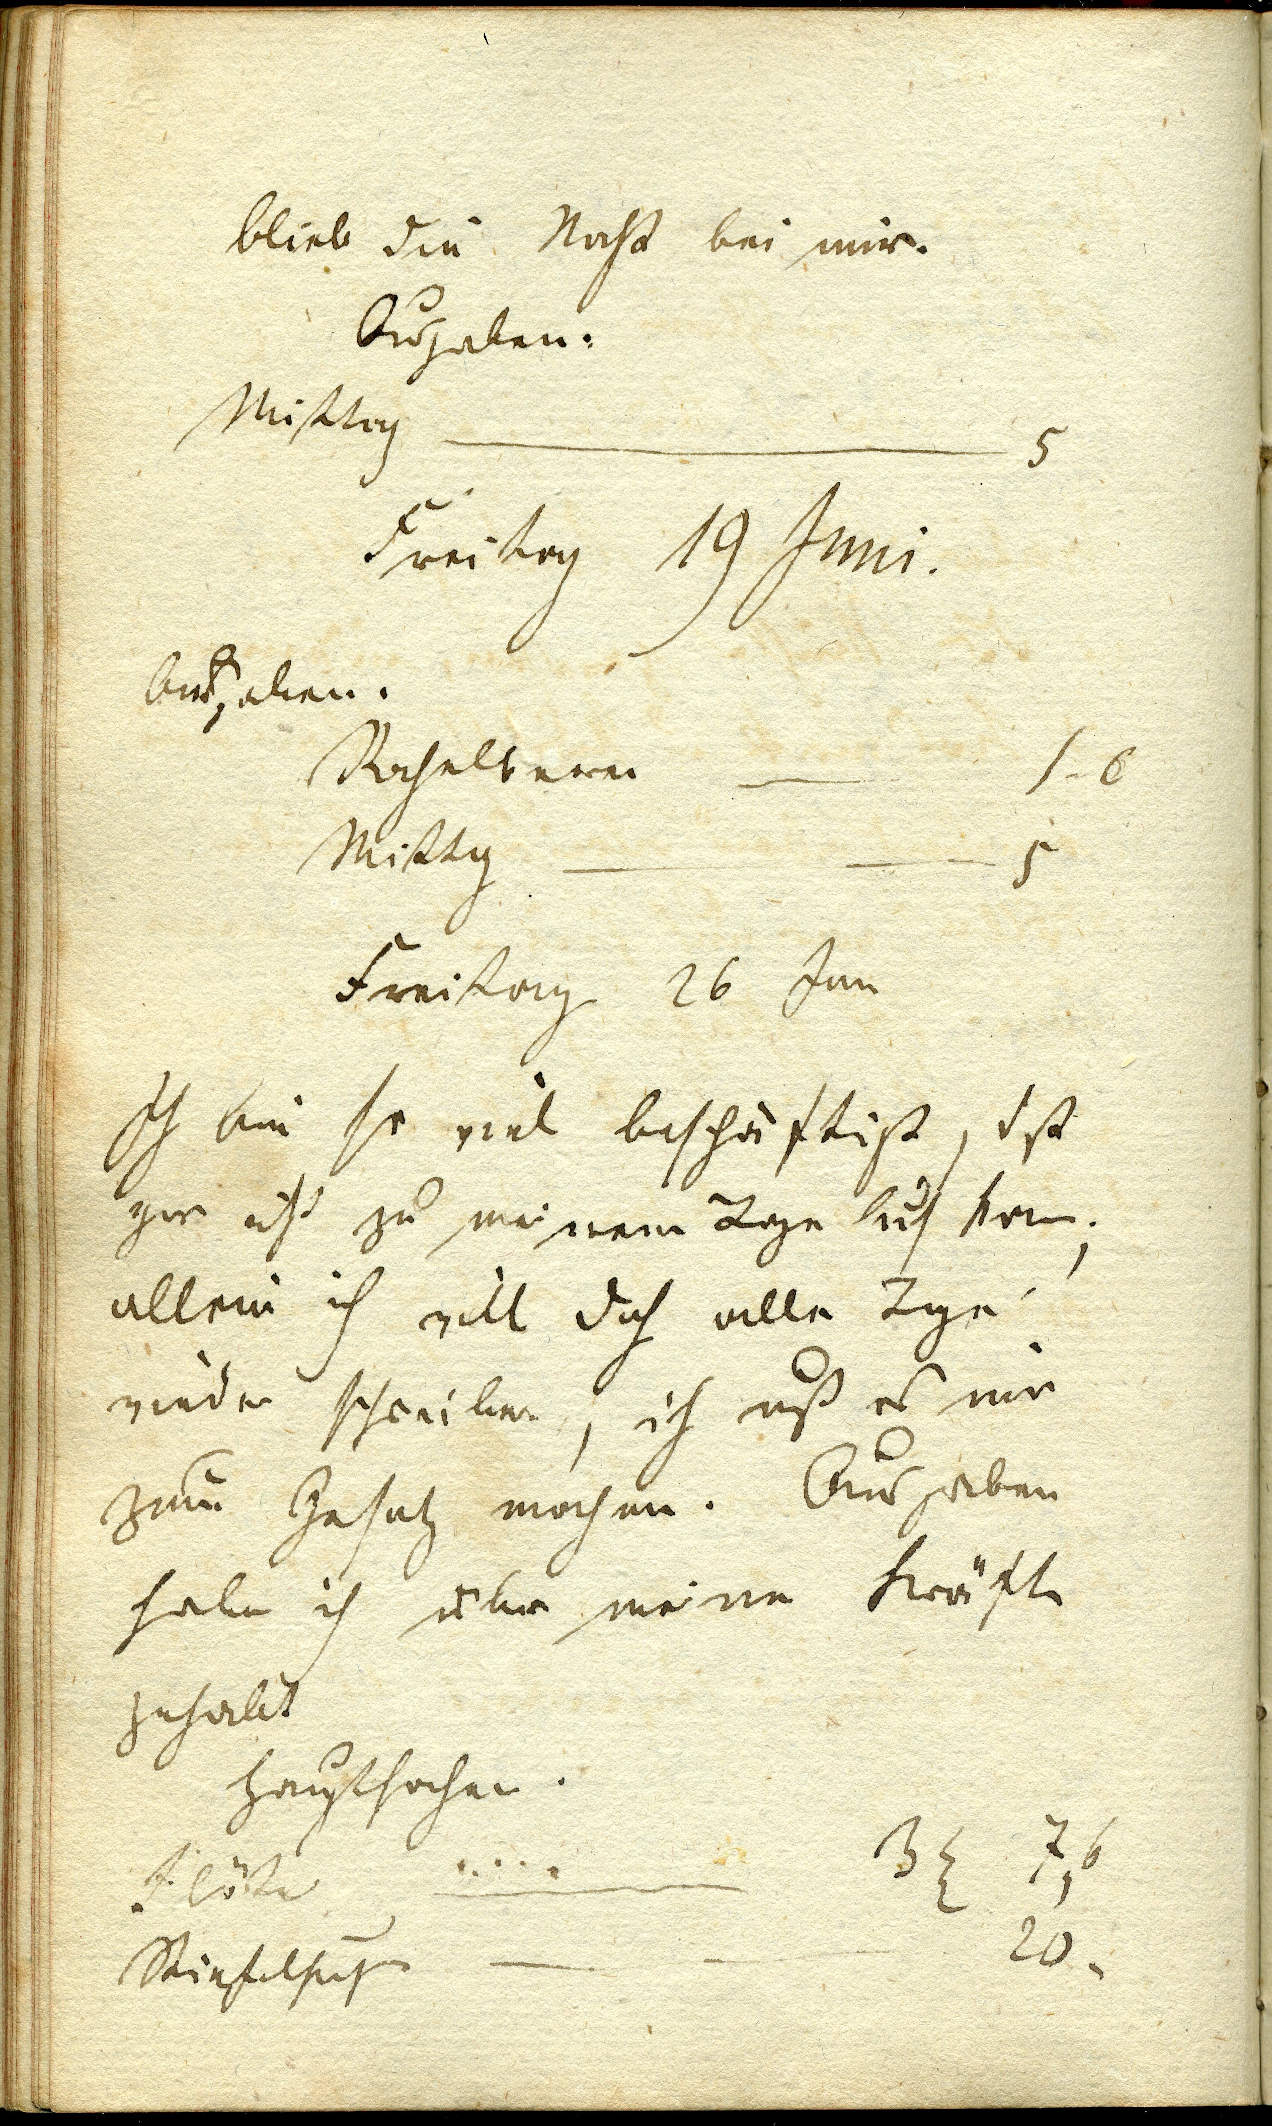 blieb die Nacht bei mir.
Ausgaben:
Mittag 5
Freitag 19 Juni.
Ausgaben.
1-6
Mittag 5
Freitag 26 Jun
Ich bin so viel beschäftigt, daß
gar nicht zu meinem Tage buch kom̄;
allein ich will doch alle Tage
wieder schreiben, ich muß es mir
zum Gesetz machen. Ausgaben
habe ich über meine Kräfte
gehabt
Hauptsachen.
Flöte ..... 3 7,6
20-